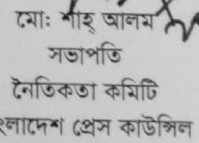 মোঃ শাহ্ আলম
সভাপতি
নৈতিকতা কমিটি
লাদেশ প্রেস কাউন্সিল